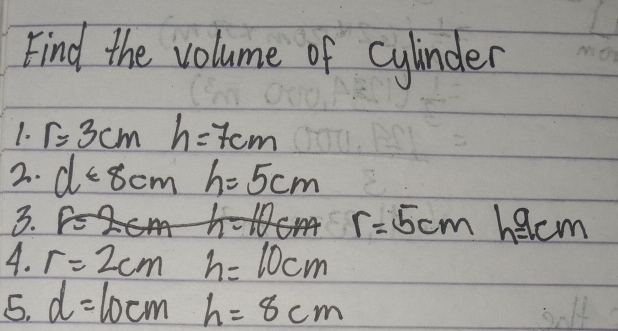 Find the volume of cylinder
1. r=3cm h=7cm
2. d=8cm h=5cm
3. r=2cm h=10cm r=5cm h=9cm
4. r=2cm h=10cm
5. d=10cm h=8cm